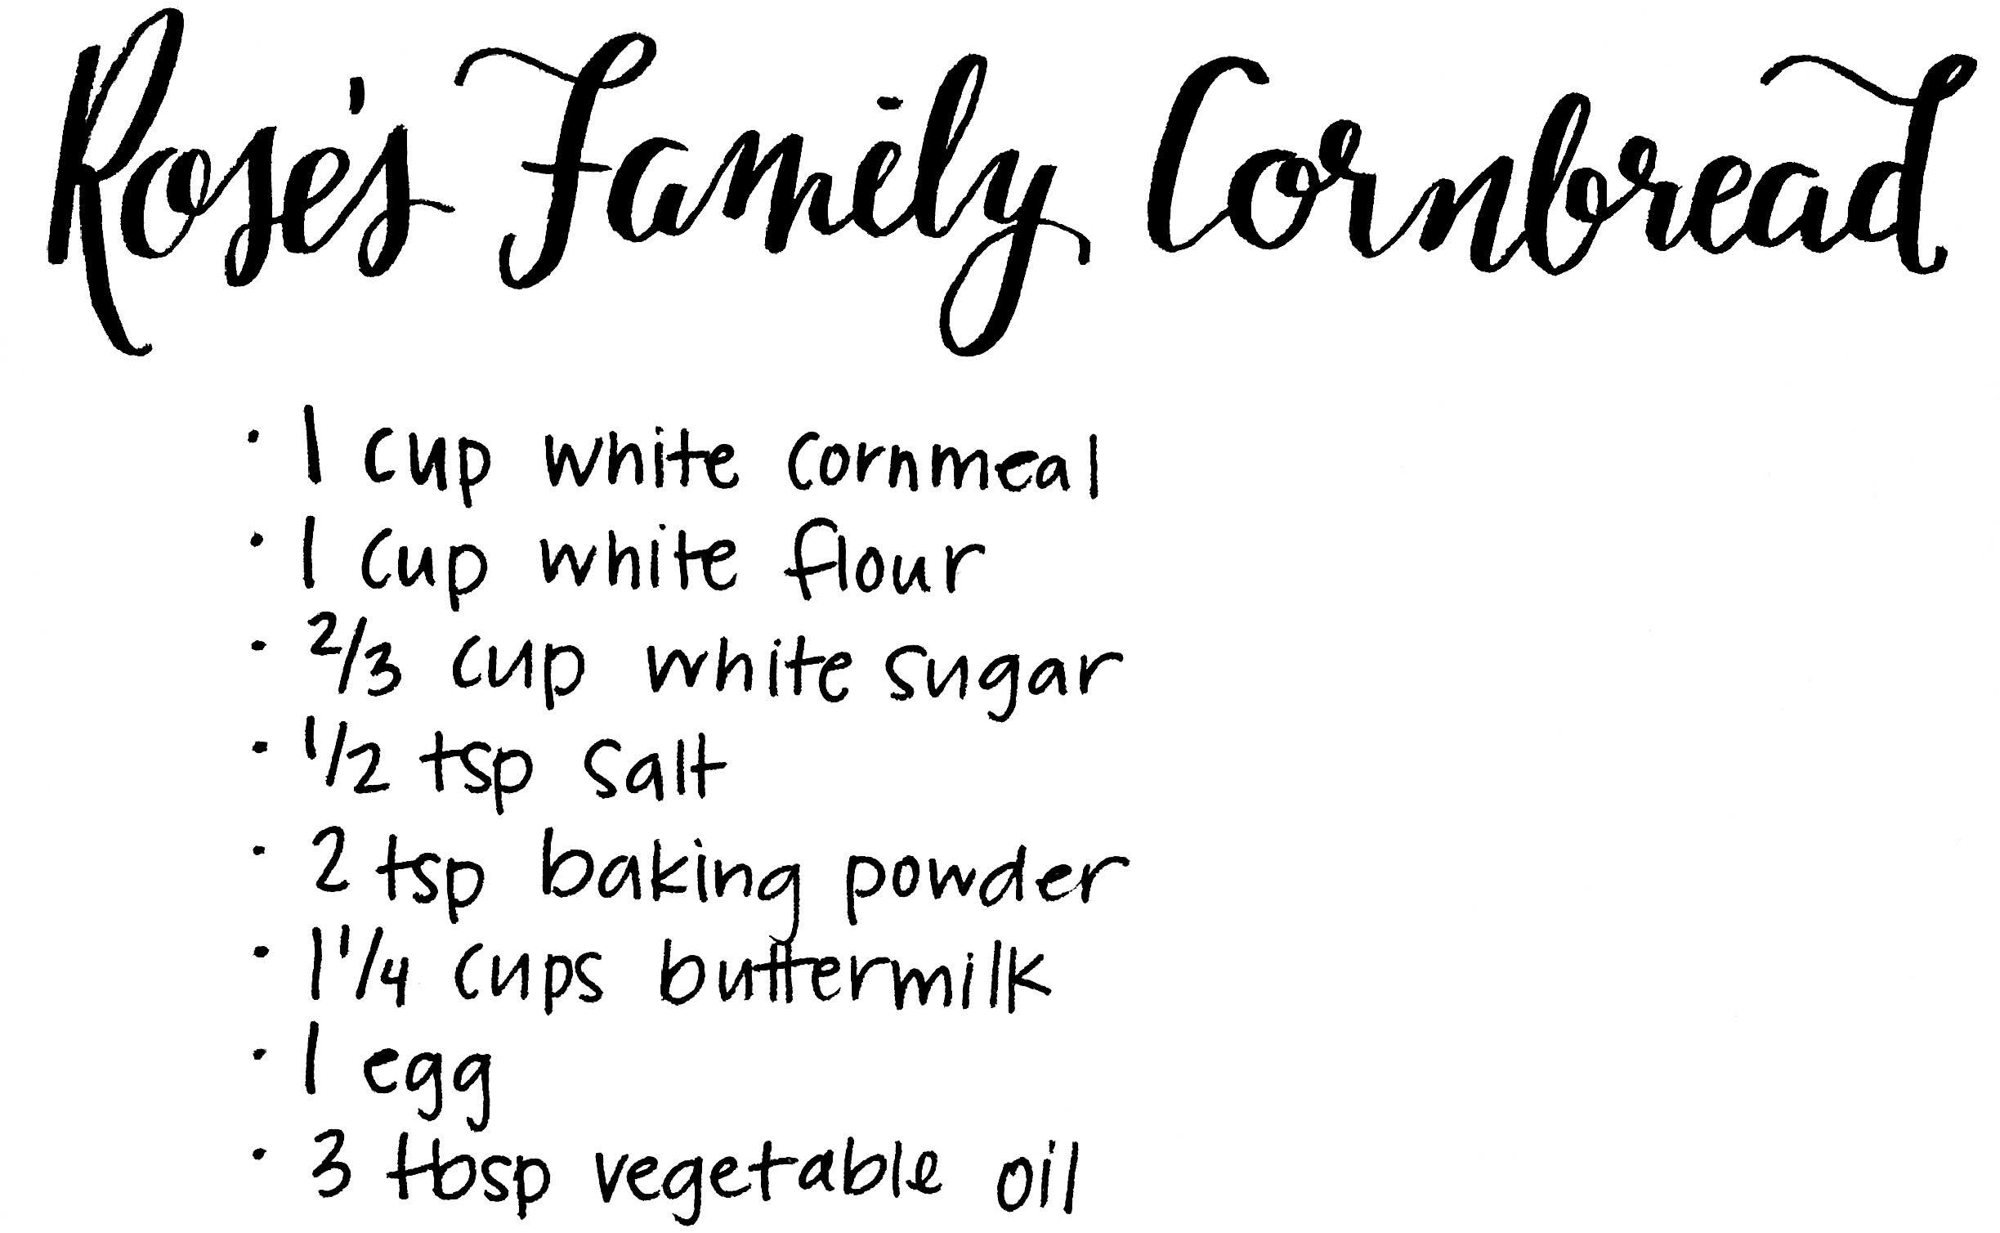 Rose's Family Cornbread
· 1 cup white cornmeal
· 1 cup white flour
· 2/3 cup white sugar
· 1/2 tsp salt
· 2 tsp baking powder
· 1 1/4 cups buttermilk
· 1 egg
· 3 tbsp vegetable oil